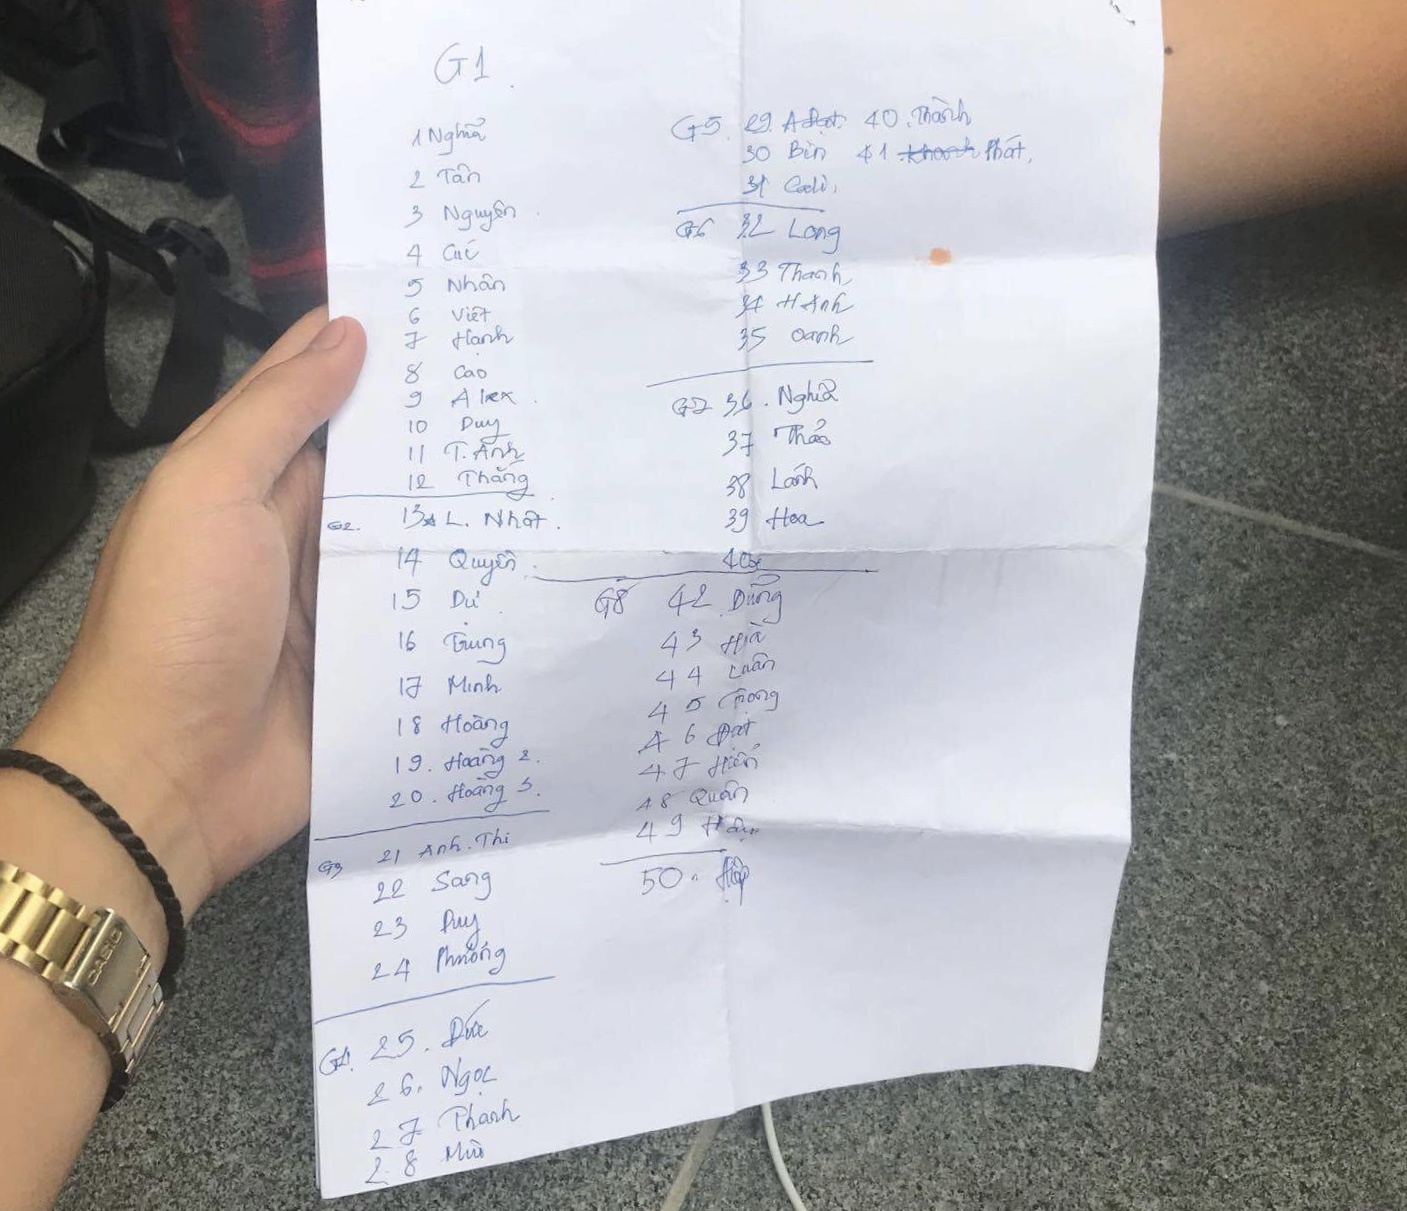 G1
1 Nghĩa
2 Tân
3 Nguyên
4 Cúc
5 Nhân
6 Việt
7 Hạnh
8 Cao
9 Alex
10 Duy
11 T. Anh
12 Thắng
G2. 13 L. Nhật.
14 Quyên
15 Dự
16 Trung
17 Minh
18 Hoàng
19. Hoàng 2.
20. Hoàng 3.
G3 21 Anh. Thi
22 Sang
23 Duy
24 Phương
G4. 25. Đức
26. Ngọc
27 Thanh
28
G5. 29 40. Thành
30 Bin 41 Phát.
31
G6 32 Long
33 Thanh
34 H Anh
35 Oanh
G7 36. Nghĩa
37 Thảo
38 Lánh
39 Hoa
40
G8 42 Dũng
43
44 Luân
45 Trọng
46 Đạt
47 Hiển
48 Quân
49
50.
CASIO